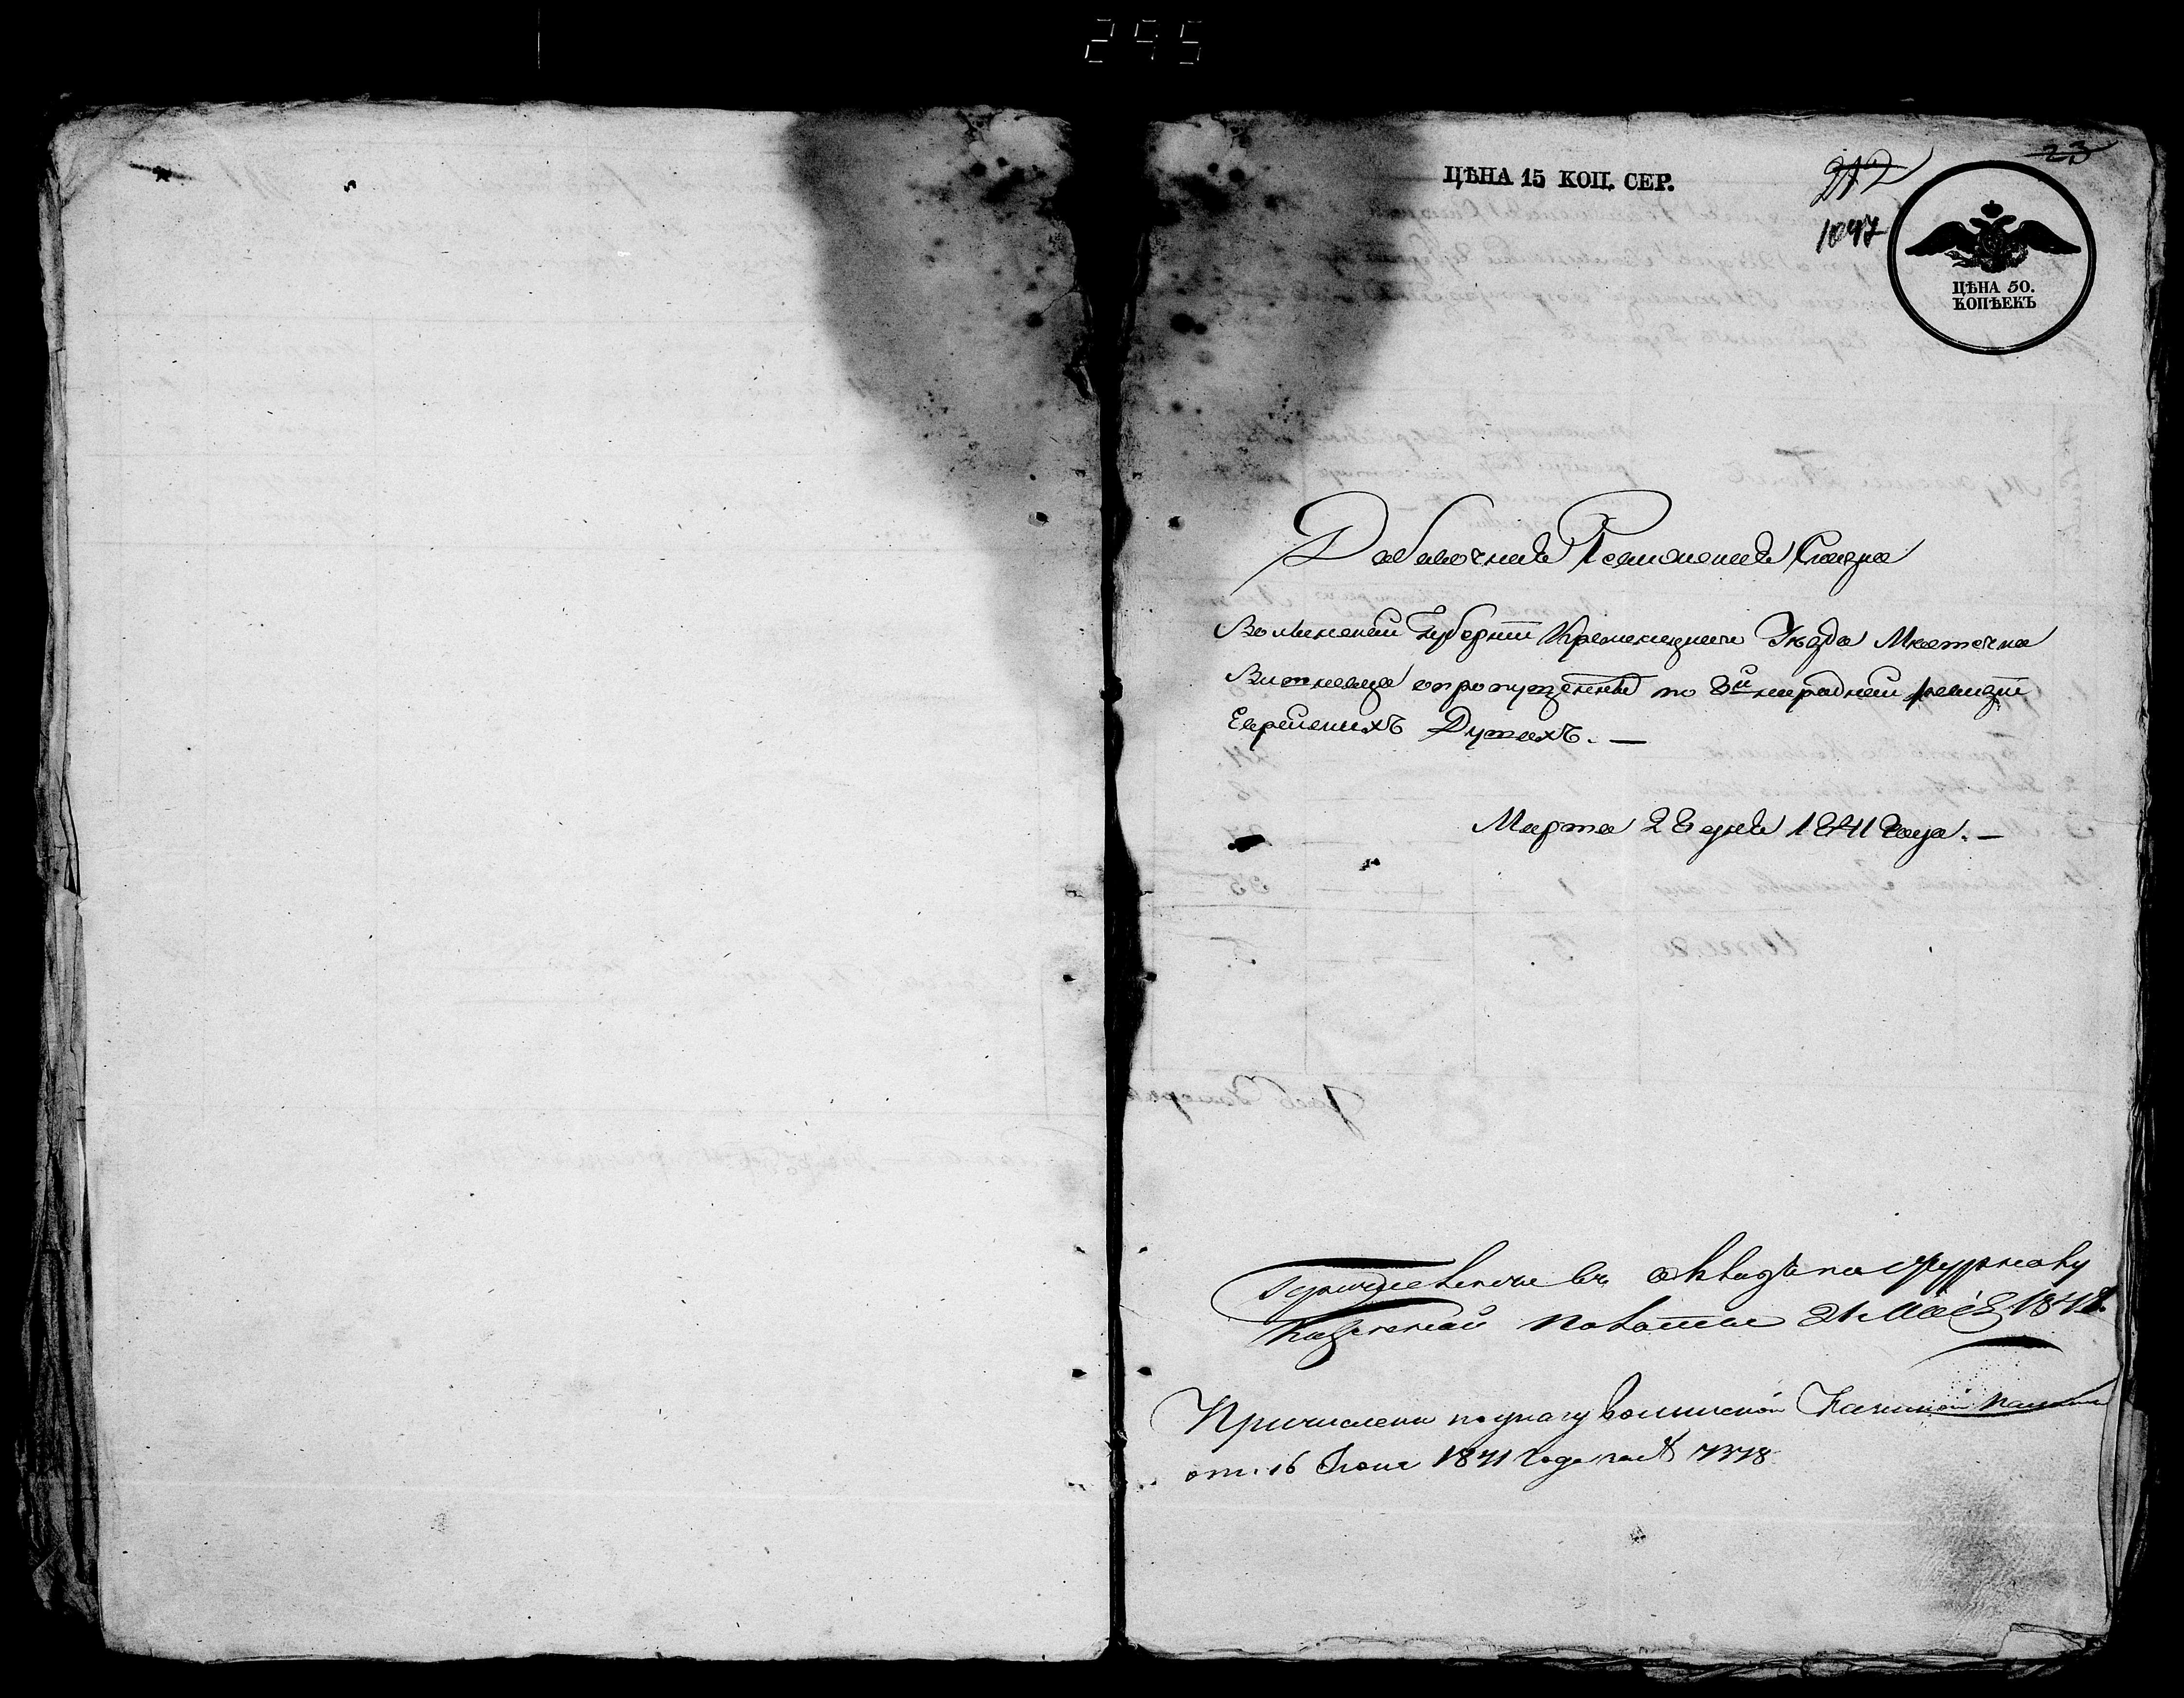 295
ЦѢНА 15 КОП. СЕР.
23
212
1047
ЦѢНА 50.
КОПѢЕКЪ
Добавочная Ревизская Сказка
Волынской Губерніи Кременецкаго Уѣзда Мѣстечка
Вишневца о пропущенныхъ по 8й народной ревизіи
Еврейскихъ Душахъ. —
Марта 28 дня 1841 Года. —
въ окладъ по журналу
Казенной Палаты 21 Мая 1841
Причислены по указу Волынской Казенной Палаты
отъ 16 Іюня 1841 Года за №